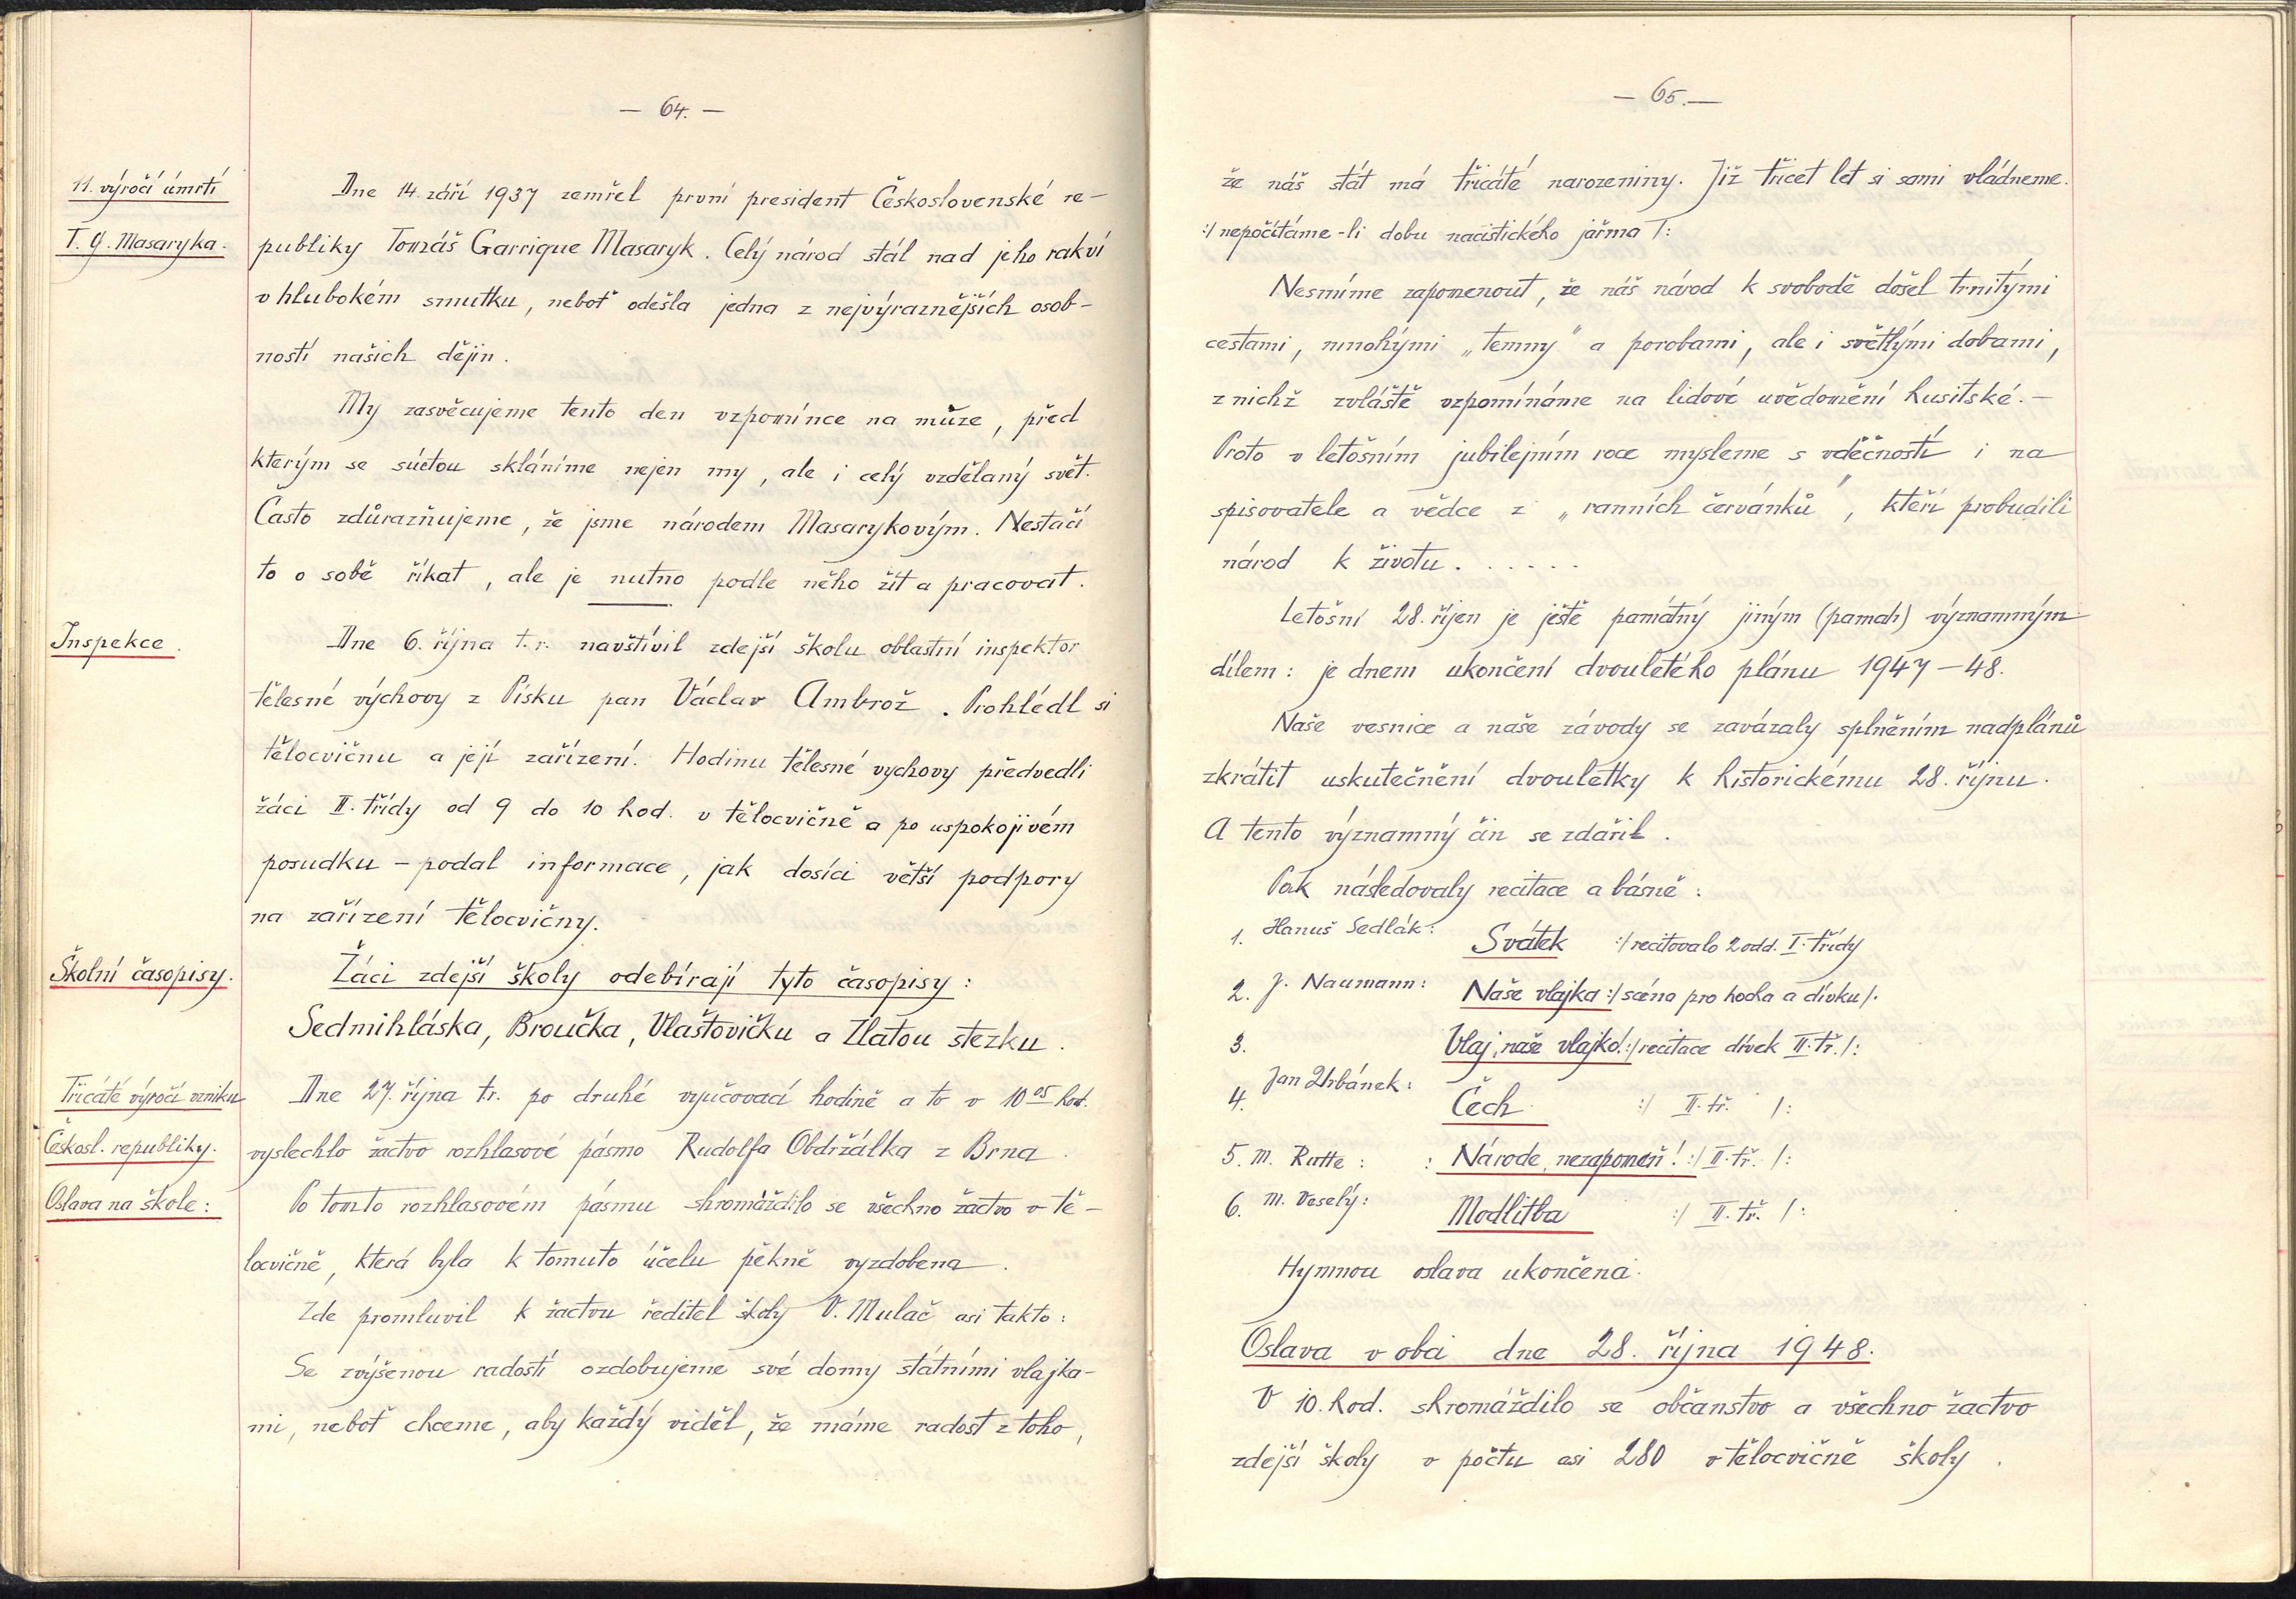 — 64. —
11. výročí úmrtí
T. G. Masaryka.
Dne 14. září 1937 zemřel první president Československé re-
publiky Tomáš Garrique Masaryk. Celý národ stál nad jeho rakví
v hlubokém smutku, neboť odešla jedna z nejvýraznějších osob-
ností našich dějin.
My zasvěcujeme tento den vzpomínce na muže, před
kterým se súctou skláníme nejen my, ale i celý vzdělaný svět.
Často zdůrazňujeme, že jsme národem Masarykovým. Nestačí
to o sobě říkat, ale je nutno podle něho žít a pracovat.
Inspekce.
Dne 6. října t.r. navštívil zdejší školu oblastní inspektor
tělesné výchovy z Písku pan Václav Ambrož. Prohlédl si
tělocvičnu a její zařízení. Hodinu tělesné vychovy předvedli
žáci II. třídy od 9 do 10 hod. v tělocvičně a po uspokojivém
posudku – podal informace, jak dosíci větší podpory
na zařízení tělocvičny.
Školní časopisy.
Žáci zdejší školy odebírají tyto časopisy:
Sedmihláska, Broučka, Vlaštovičku a Zlatou stezku.
Třicáté výročí vzniku
Českosl. republiky.
Oslava na škole:
Dne 27. října tr. po druhé vyučovací hodině a to v 10 05 hod.
vyslechlo žactvo rozhlasové pásmo Rudolfa Obdržálka z Brna.
Po tomto rozhlasovém pásmu shromáždilo se všechno žactvo v tě-
locvičně, která byla k tomuto účelu pěkně vyzdobena.
Zde promluvil k žactvu ředitel školy V. Mulač asi takto:
Se zvýšenou radostí ozdobujeme své domy státními vlajka-
mi, neboť chceme, aby každý viděl, že máme radost z toho,
— 65. —
že náš stát má třicáté narozeniny. Již třicet let si sami vládneme.
:/ nepočítáme-li dobu nacistického jařma /:
Nesmíme zapomenout, že náš národ k svobodě došel trnitými
cestami, mnohými „temny" a porobami, ale i světlými dobami,
z nichž zvláště vzpomínáme na lidové uvědomění husitské. –
Proto v letošním jubilejním roce mysleme s vděčností i na
spisovatele a vědce z „ranních červánků", kteří probudili
národ k životu. . . . . .
Letošní 28. říjen je ještě památný jiným (pamah) významným
dílem: je dnem ukončení dvouletého plánu 1947–48.
Naše vesnice a naše závody se zavázaly splněním nadplánů
zkrátit uskutečnění dvouletky k historickému 28. říjnu.
A tento významný čin se zdařil.
Pak následovaly recitace a básně:
1. Hanuš Sedlák: Svátek :/ recitovalo 2 odd. I. třídy
2. J. Naumann: Naše vlajka :/ scéna pro hocha a dívku /.
3. Vlaj, naše vlajko! :/ recitace dívek II. tř. /:
4. Jan Urbánek: Čech :/ II. tř. /:
5. M. Rutte: : Národe, nezapomeň! :/ II. tř. /:
6. M. Veselý: Modlitba :/ II. tř. /:
Hymnou oslava ukončena.
Oslava v obci dne 28. října 1948.
V 10. hod. shromáždilo se občanstvo a všechno žactvo
zdejší školy v počtu asi 280 v tělocvičně školy.